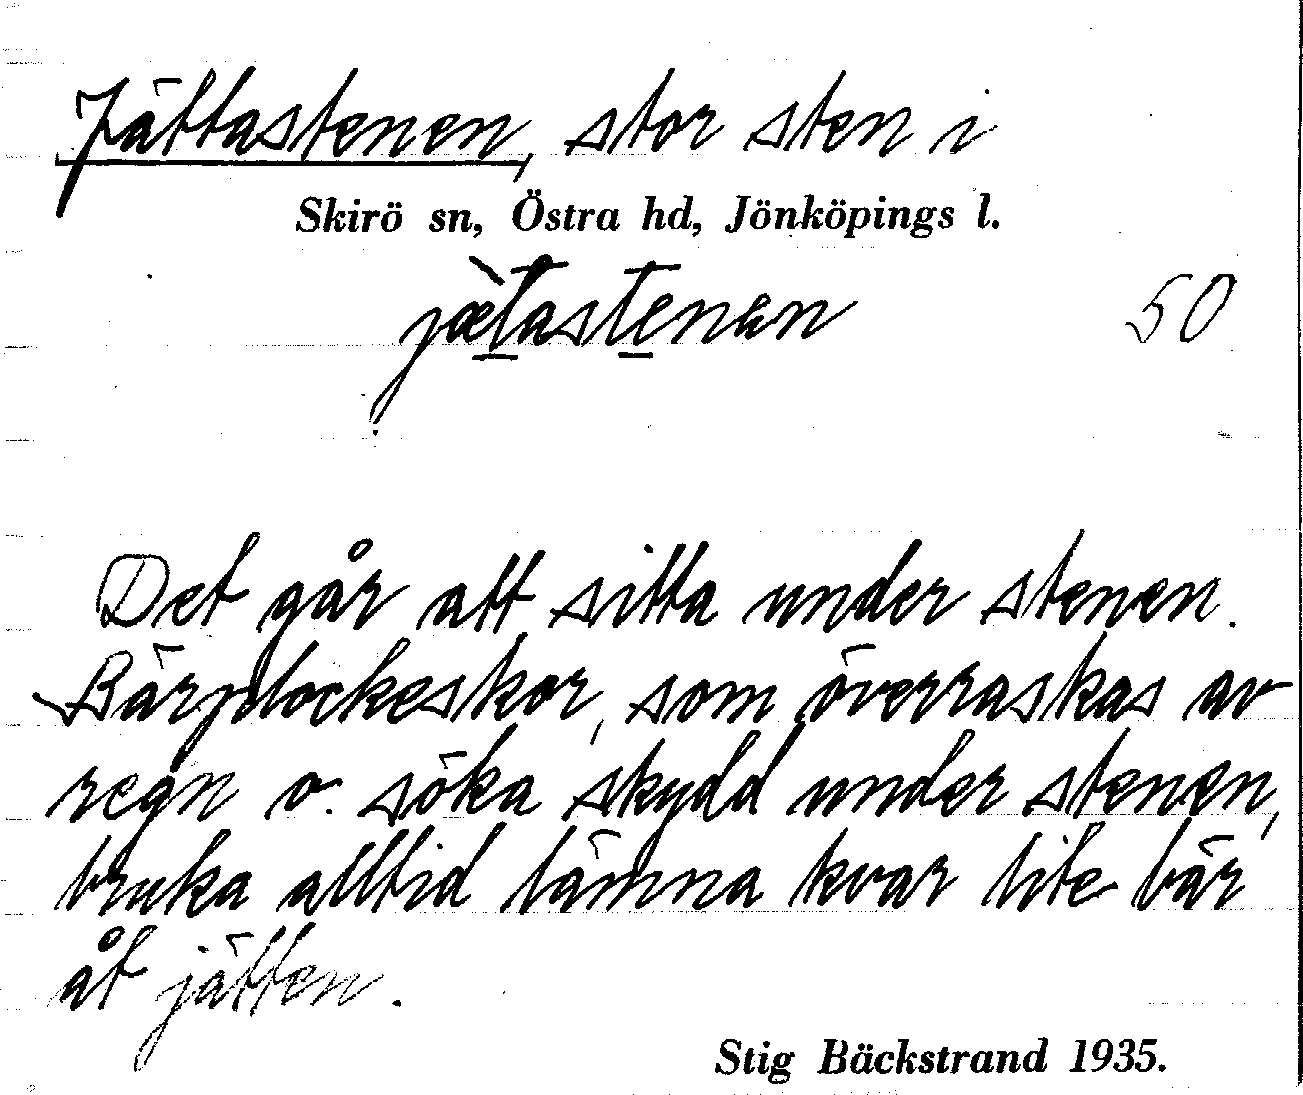 Jättastenen, stor sten i
Skirö sn, Östra hd, Jönköpings l.
jætastenen 50
Det går att sitta under stenen.
Bärplockeskor, som överraskas av
regn o. söka skydd under stenen,
bruka alltid lämna kvar lite bär
åt jätten.
Stig Bäckstrand 1935.